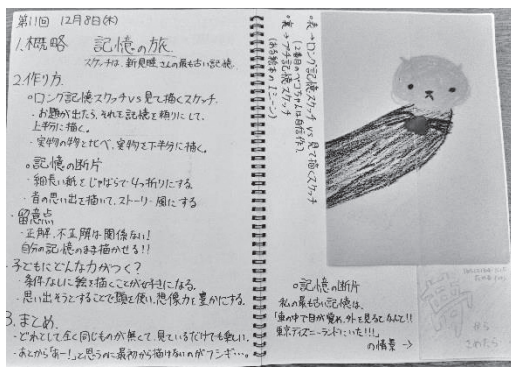 第11回 12月8日(木)
1.概略 記憶の旅
スケッチは、新見曜さんの最も古い記憶
2.作り方
○ロング記憶スケッチ vs 見て描くスケッチ
・お題が出たら、それを記憶を頼りにして、
上半分に描く。
・実物の物と比べ、実物を下半分に描く。
○記憶の断片
・細長い紙をじゃばらで4つ折りにする
・昔の思い出を描いて、ストーリー風にする
・留意点
・正解、不正解は関係ない!
自分の記憶のまま描かせる!!
・子どもにどんな力がつく?
・条件なしに絵を描くことが好きになる。
・思い出そうとすることで頭を使い、想像力を豊かにする。
3.まとめ
・どれとして全く同じものが無くて、見ているだけでも楽しい。
・あとから「あー!」と思うのに最初から描けないのがフシギ…。
○表→ロング記憶スケッチ vs 見て描くスケッチ
(2番目のペコちゃんは自信作)
○裏→プチ記憶スケッチ
(ある絵本の1シーン)
○記憶の断片
私の最も古い記憶は、
「車の中で目が覚め、外を見るとなんと!!
東京ディズニーランドにいた!!!」
の情景→